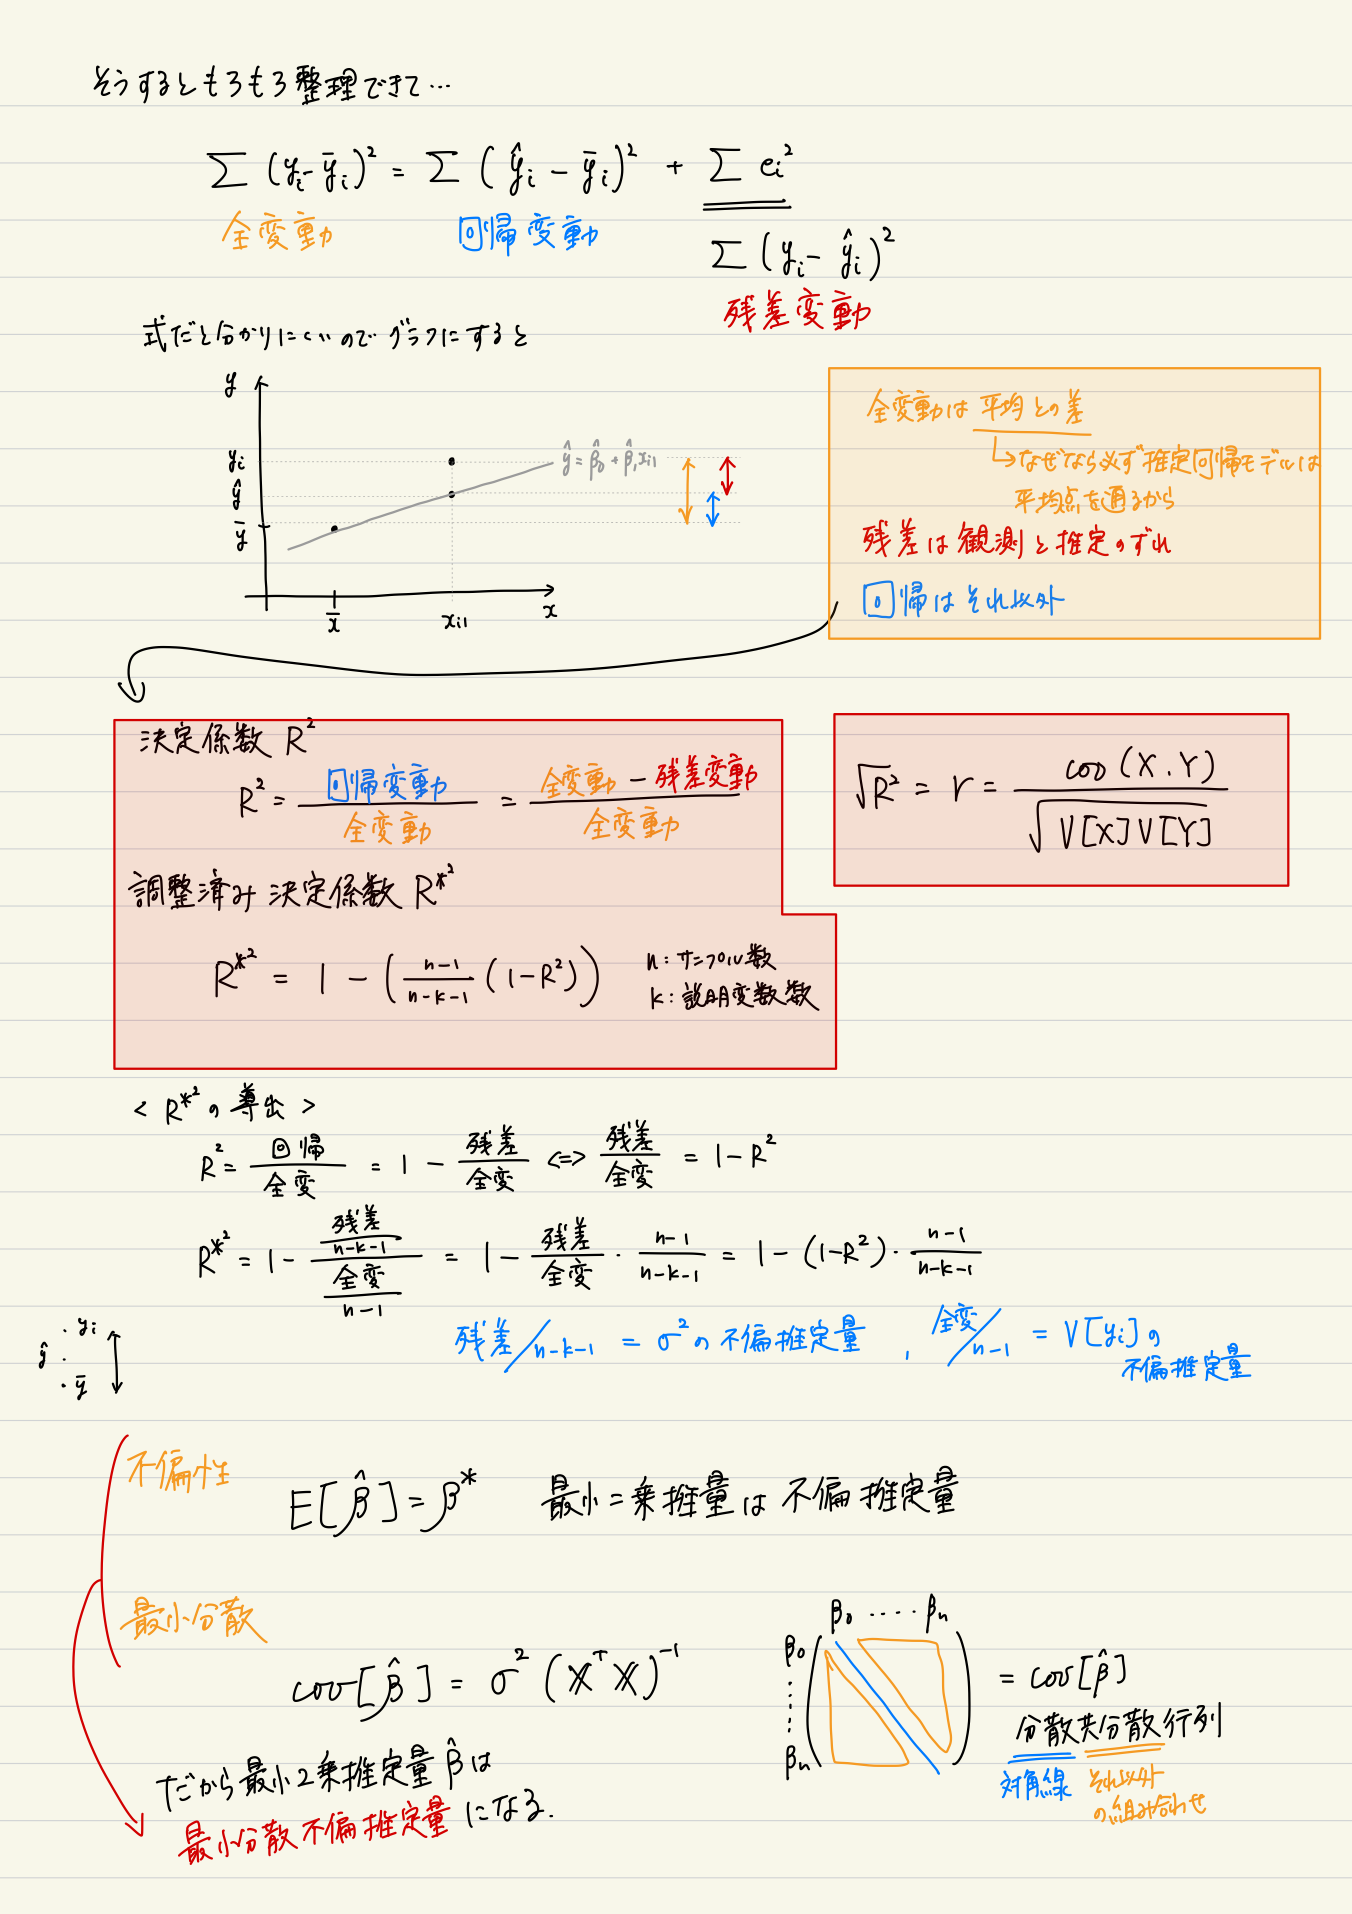 そうするともろもろ整理できて…
∑(yi-ȳi)² = ∑(ŷi-ȳi)² + ∑ei²
全変動 回帰変動
∑(yi-ŷi)²
残差変動
式だと分かりにくいので グラフにすると
y
yi
ŷ
ȳ
x̄ xi1 x
ŷ=β̂0+β̂1xi1
全変動は平均との差
↳なぜなら必ず推定回帰モデルは
平均点を通るから
残差は観測と推定のずれ
回帰はそれ以外
決定係数 R²
R² = 回帰変動/全変動 = (全変動-残差変動)/全変動
調整済み決定係数 R*²
R*² = 1 - ( (n-1)/(n-k-1) (1-R²) )
n:サンプル数
k:説明変数数
√R² = r = cov(X.Y)/√V[X]V[Y]
< R*²の導出 >
R² = 回帰/全変 = 1 - 残差/全変 <=> 残差/全変 = 1-R²
R*² = 1 - (残差/(n-k-1))/(全変/(n-1)) = 1 - 残差/全変 ・ (n-1)/(n-k-1) = 1-(1-R²)・(n-1)/(n-k-1)
残差/n-k-1 = σ²の不偏推定量 , 全変/n-1 = V[yi]の
不偏推定量
yi
ŷ
ȳ
不偏性
E[β̂]=β* 最小二乗推量は不偏推定量
最小分散
cov[β̂] = σ²(XᵀX)⁻¹
β0 ・・・・ βn
β0
⋮
βn
= cov[β̂]
分散共分散行列
対角線 それ以外
の組み合わせ
だから最小2乗推定量β̂は
最小分散不偏推定量になる.